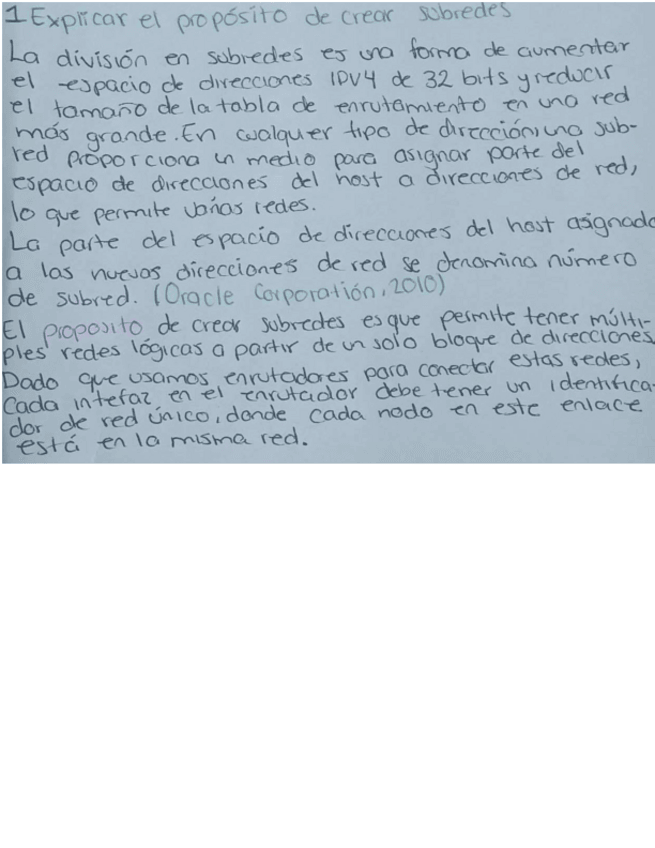 1 Explicar el propósito de crear subredes
La división en subredes es una forma de aumentar
el espacio de direcciones IPV4 de 32 bits y reducir
el tamaño de la tabla de enrutamiento en una red
más grande. En cualquier tipo de dirección, una sub-
red proporciona un medio para asignar parte del
espacio de direcciones del host a direcciones de red,
lo que permite varias redes.
La parte del espacio de direcciones del host asignado
a las nuevas direcciones de red se denomina número
de subred. (Oracle Corporatión, 2010)
El proposito de crear subredes es que permite tener múlti-
ples redes lógicas a partir de un solo bloque de direcciones,
Dado que usamos enrutadores para conectar estas redes,
Cada intefaz en el enrutador debe tener un identifica-
dor de red único, donde cada nodo en este enlace
está en la misma red.